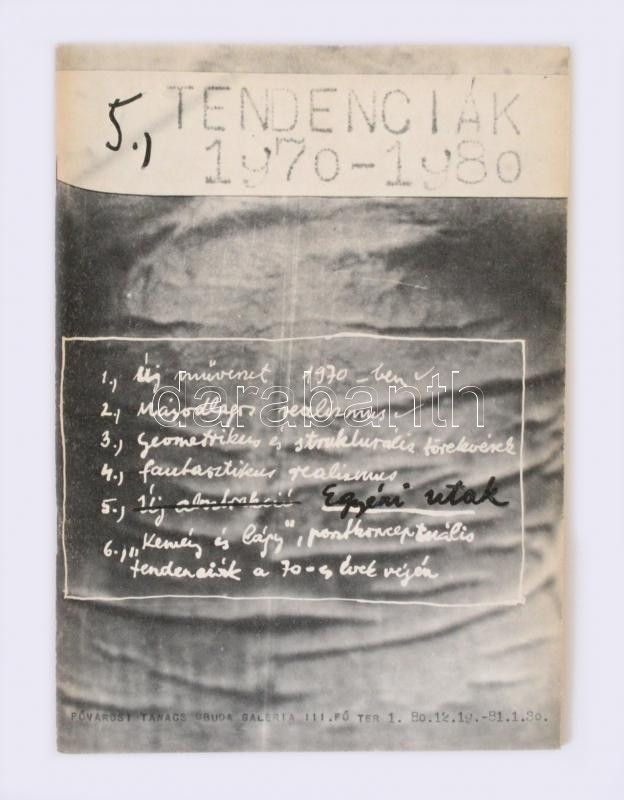 5., TENDENCIÁK
1970-1980
1., Új művészet 1970-ben ✓
2., Másodlagos realizmus ✓
3., geometrikus és strukturális törekvések
4., fantasztikus realizmus
5., Új absztrakció Egyéni utak
6., „Kemény és lágy", posztkonceptuális
tendenciák a 70-es évek végén
darabanth
FŐVÁROSI TANÁCS ÓBUDA GALÉRIA III.FŐ TÉR 1. 80.12.19.-81.1.30.